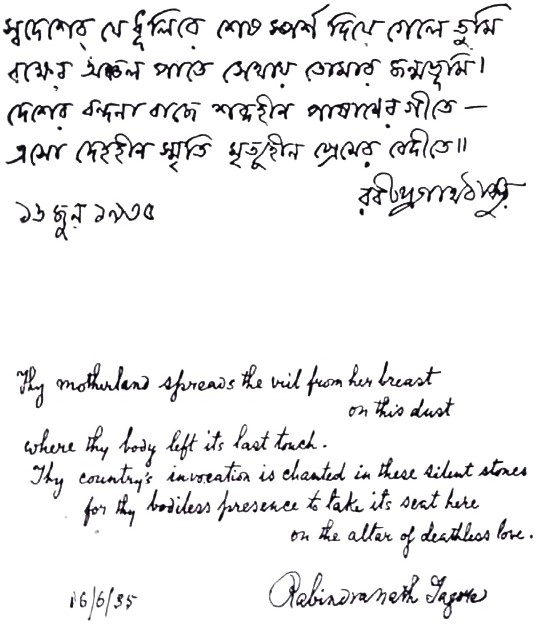 স্বদেশের যে ধূলিরে শেষ স্পর্শ দিয়ে গেলে তুমি
বক্ষের অঞ্চল পাতে সেথায় তোমার জন্মভূমি।
দেশের বন্দনা বাজে শব্দহীন পাষাণের গীতে —
এসো দেহহীন স্মৃতি মৃত্যুহীন প্রেমের বেদীতে॥
রবীন্দ্রনাথ ঠাকুর
১৬ জুন ১৯৩৫
Thy motherland spreads the veil from her breast
on this dust
where thy body left its last touch.
Thy country's invocation is chanted in these silent stones
for thy bodiless presence to take its seat here
on the altar of deathless love.
16/6/35 Rabindranath Tagore